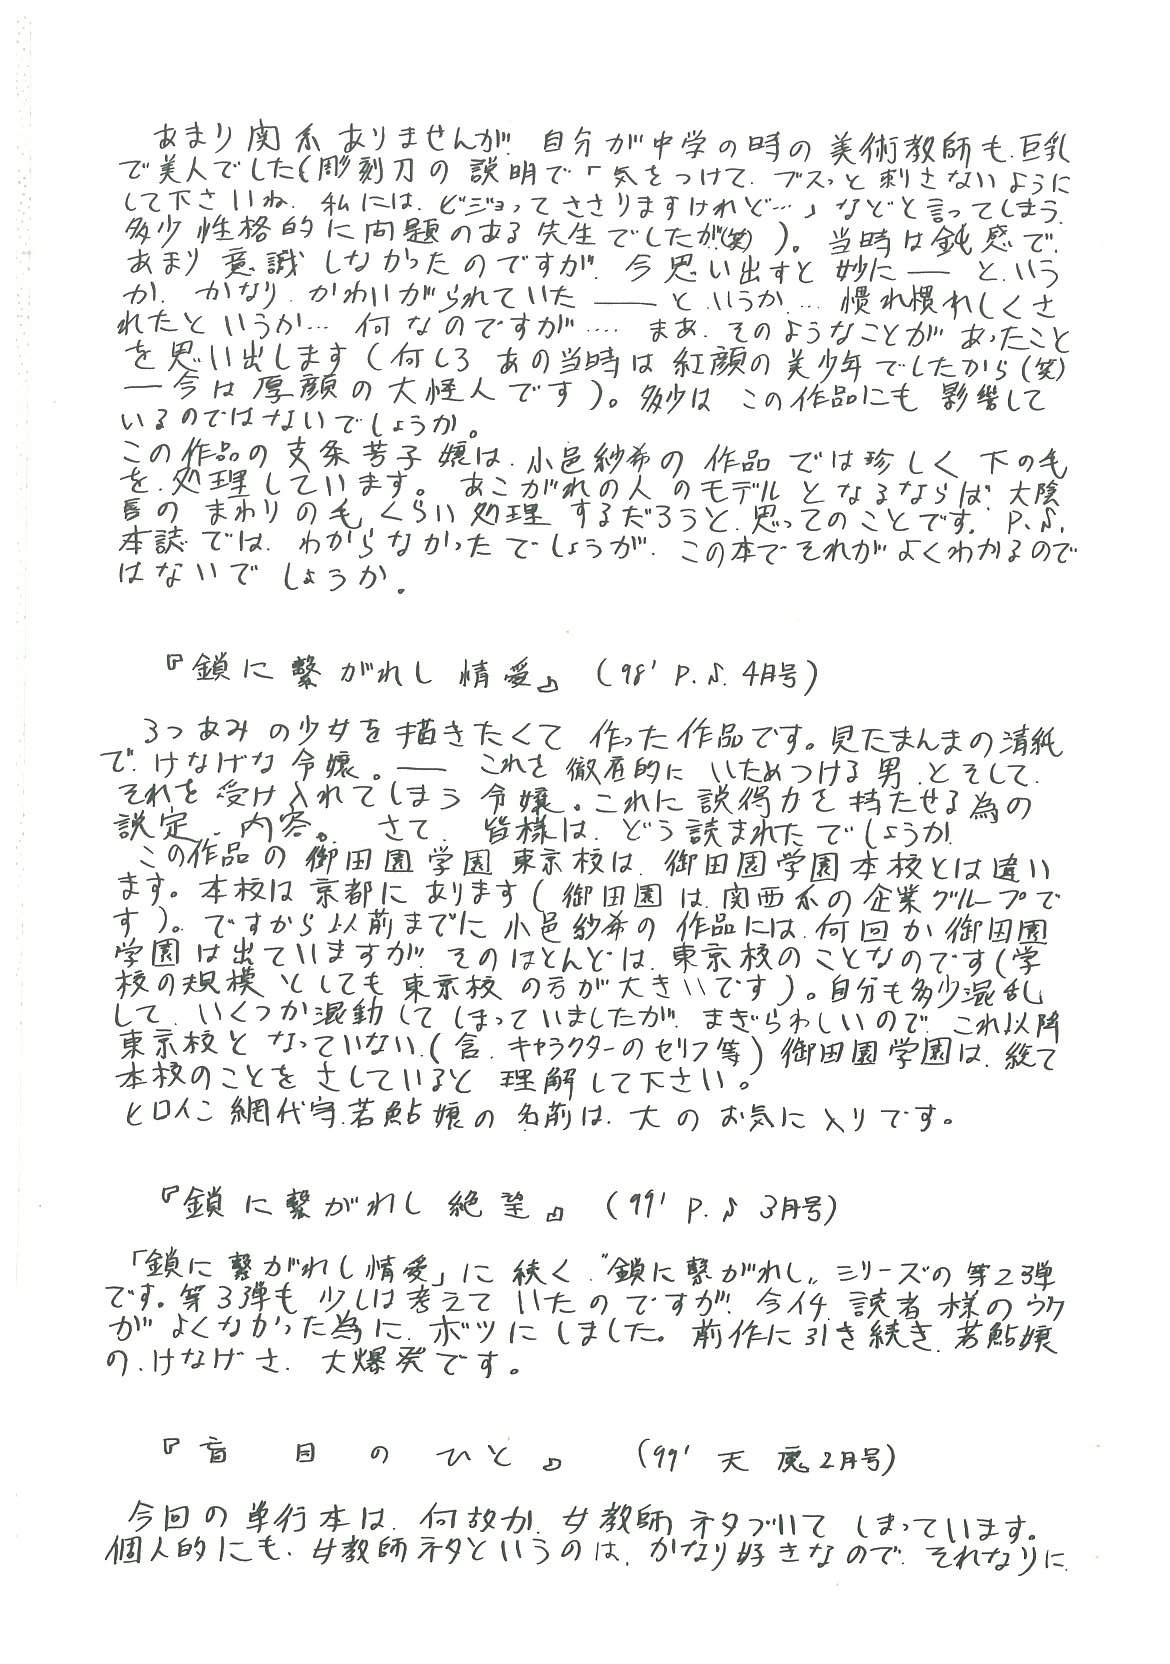 あまり関系ありませんが、自分が中学の時の美術教師も、巨乳
で美人でした(彫刻刀の説明で「気をつけて、ブスっと刺さないように
して下さいね、私には、ビジョってささりますけれど…」などと言ってしまう、
多少性格的に問題のある先生でしたが(笑))。当時は鈍感で、
あまり意識しなかったのですが、今思い出すと妙に――と、いう
か、かなり、かわいがられていた――と、いうか…、慣れ慣れしくさ
れたというか…何なのですが…、まあ、そのようなことがあったこと
を思い出します(何しろあの当時は紅顔の美少年でしたから(笑)
―今は厚顔の大怪人です)。多少はこの作品にも影響して
いるのではないでしょうか。
この作品の支条芳子嬢は、小邑紗希の作品では珍しく下の毛
を、処理しています。あこがれの人のモデルとなるならば、大陰
唇のまわりの毛くらい処理するだろうと、思ってのことです。P.S.
本誌では、わからなかったでしょうが、この本でそれがよくわかるので
はないでしょうか。
『鎖に繋がれし情愛』(98' P.S. 4月号)
3つあみの少女を描きたくて作った作品です。見たまんまの清純
で、けなげな令嬢。――これを徹底的にいためつける男、とそして、
それを受け入れてしまう令嬢。これに説得力を持たせる為の
設定、内容。さて、皆様は、どう読まれたでしょうか。
この作品の御田園学園東京校は、御田園学園本校とは違い
ます。本校は京都にあります(御田園は、関西系の企業グループで
す)。ですから以前までに小邑紗希の作品には、何回か御田園
学園は出ていますが、そのほとんどは、東京校のことなのです(学
校の規模としても東京校の方が大きいです)。自分も多少混乱
して、いくつか混動してしまっていましたが、まぎらわしいので、これ以降
東京校となっていない、(含、キャラクターのセリフ等)御田園学園は、総て
本校のことをさしていると理解して下さい。
ヒロイン網代守若鮎嬢の名前は、大のお気に入りです。
『鎖に繋がれし絶望』(99' P.S 3月号)
「鎖に繋がれし情愛」に続く、“鎖に繋がれし〟シリーズの第2弾
です。第3弾も少しは考えていたのですが、今イチ、読者様のウケ
がよくなかった為に、ボツにしました。前作に引き続き、若鮎嬢
の、けなげさ、大爆発です。
『盲目のひと』(99' 天魔2月号)
今回の単行本は、何故か、女教師ネタづいてしまっています。
個人的にも、女教師ネタというのは、かなり好きなので、それなりに、